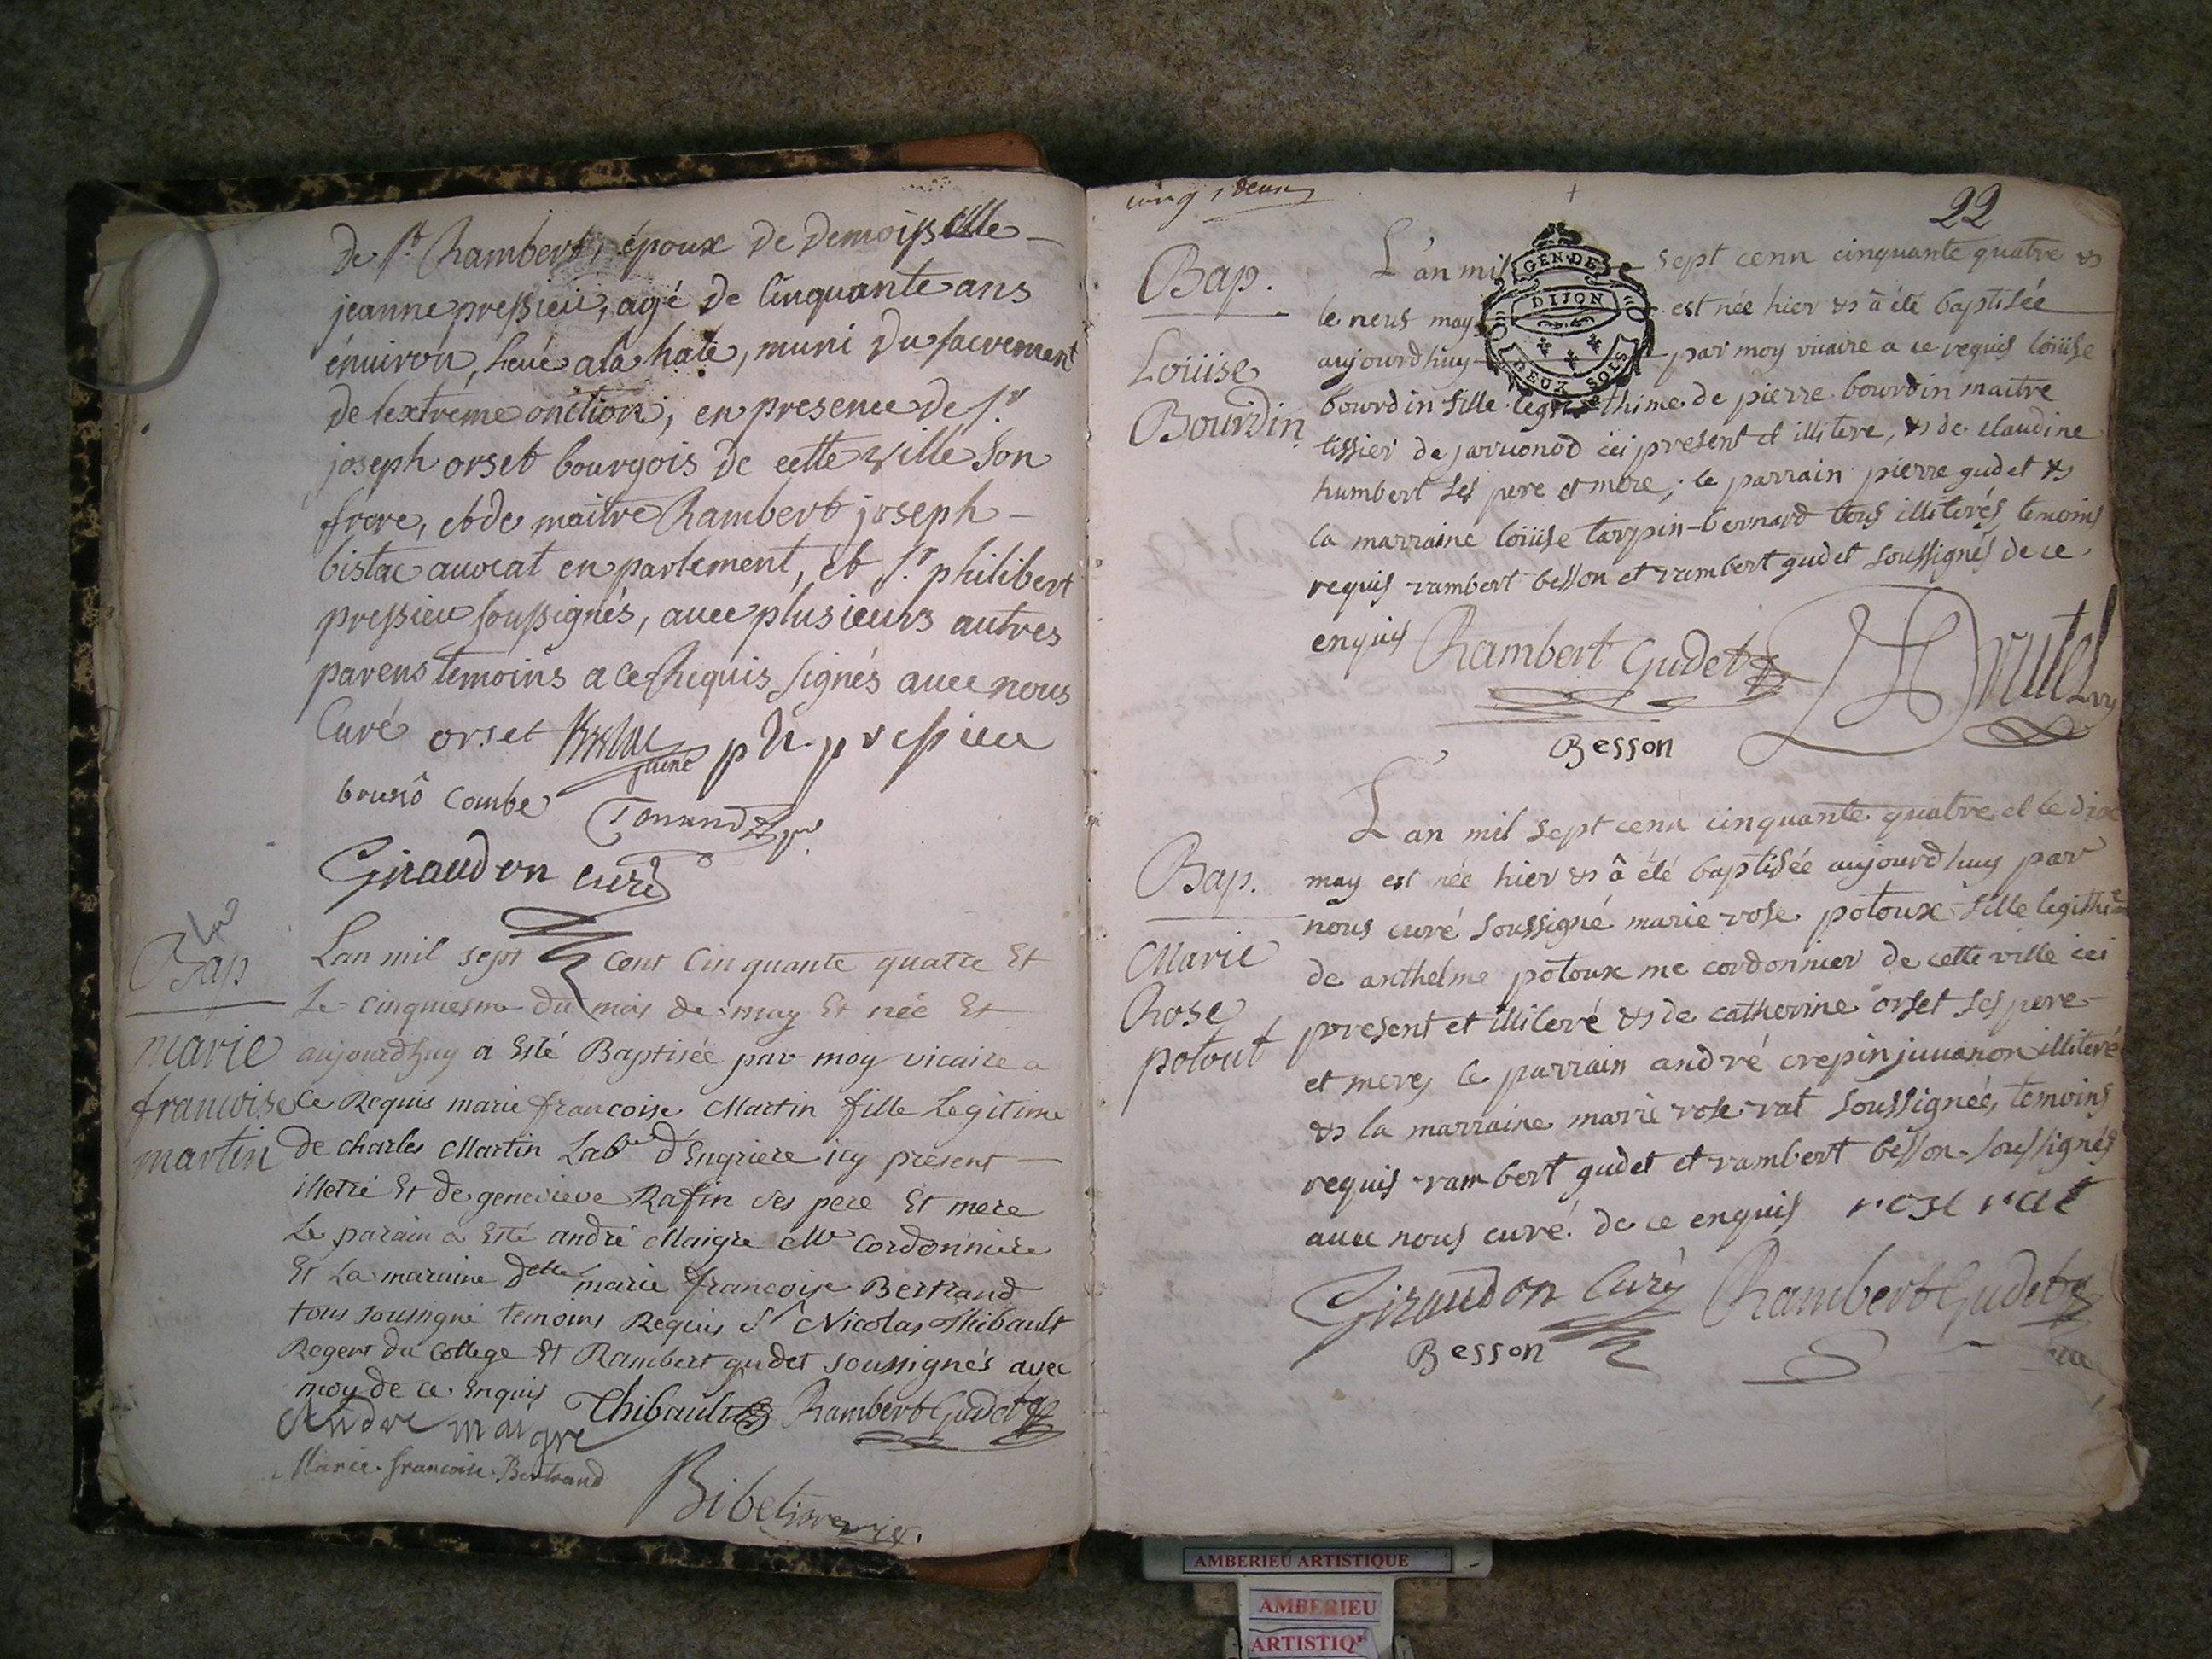 de St Rambert, époux de demoiselle
jeanne pressieu, agé de Cinquante ans
énuiron, leué ala hate, muni du sacrement
de lextreme onction, en presence de Sr
joseph orset bourgois de cette ville Son
frere, et de maitre Rambert joseph
bistac auocat en parlement, et Sr philibert
pressieu soussignés, auec plusieurs autres
parens temoins a ce Requis signés auec nous
Curé orset ph. pressieu
brunô Combe
Giraudon curé
Bap
marie
francoise
martin
Lan mil sept cent Cinquante quatre Et
Le cinquiesme du mois de may Et née Et
aujourdhuy a Esté Baptisée par moy vicaire a
Ce Requis marie francoise Martin fille Legitime
de charles Martin Labr d'Engriere icy present
illetré Et de genevieve Rafin ses pere Et mere
Le parain a Esté andré Maigre Me Cordonniere
Et La maraine delle marie francoise Bertrand
tous soussigné temoins Requis Sr Nicolas Thibault
Regent du College Et Rambert gudet soussignés avec
moy de ce Enquis Thibault Rambert Gudet
Andre maigre
Marie francoise Bertrand
22
Bap.
Loüise
Bourdin
L'an mil sept cenn cinquante quatre &
GEN·DE
DIJON
DEUX SOLS
le neuf may est née hier & â été baptisée
aujourdhuy par moy vicaire a ce requis loüise
bourdin fille legithime de pierre bourdin maitre
tissier de jaruonod ici present et illiteré, & de claudine
humbert ses pere et mere; le parrain pierre gudet &
la marraine loüise tarpin-bernard tous illiterés, temoins
requis rambert besson et rambert gudet soussignés de ce
enquis Rambert Gudet
Besson
Bap.
Marie
Rose
potout
L'an mil sept cenn cinquante quatre et le dix
may est née hier & â été baptisée aujourdhuy par
nous curé soussigné marie rose potoux fille legithime
de anthelme potoux me cordonnier de cette ville ici
present et illiteré & de catherine orset ses pere
et mere, le parrain andré crepin juuanon illiteré
& la marraine marie rose rat soussignée, temoins
requis rambert gudet et rambert besson soussignés
auec nous curé de ce enquis rose rat
Giraudon Curé Rambert Gudet
Besson
AMBERIEU ARTISTIQUE
AMBERIEU
ARTISTIQ